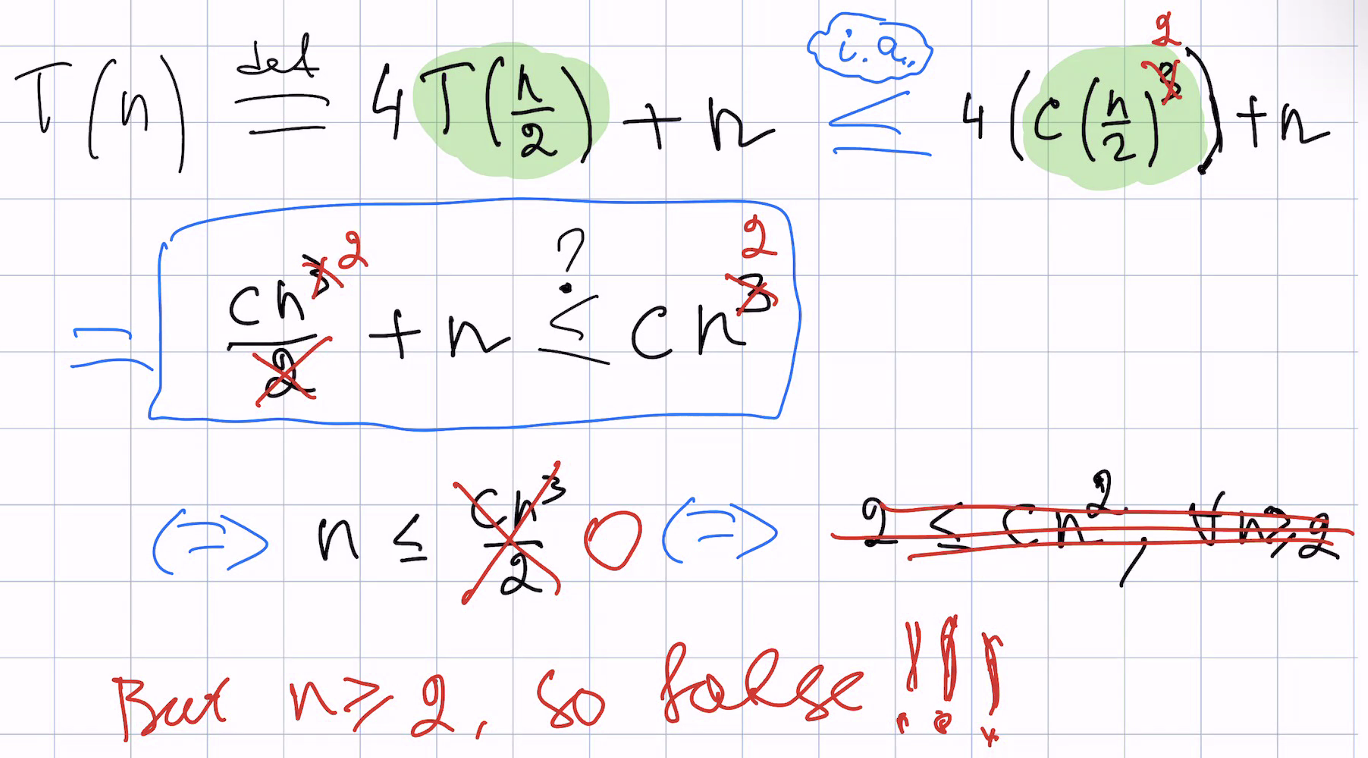 T(n) def= 4T(n/2) + n i.a. ≤ 4(c(n/2)^3 2) + n
= cn^3 2 / 2 + n ?≤ cn^3 2
(=) n ≤ cn^3/2 0 (=) 2 ≤ cn^2, ∀n≥2
But n ≥ 2, so false !!!